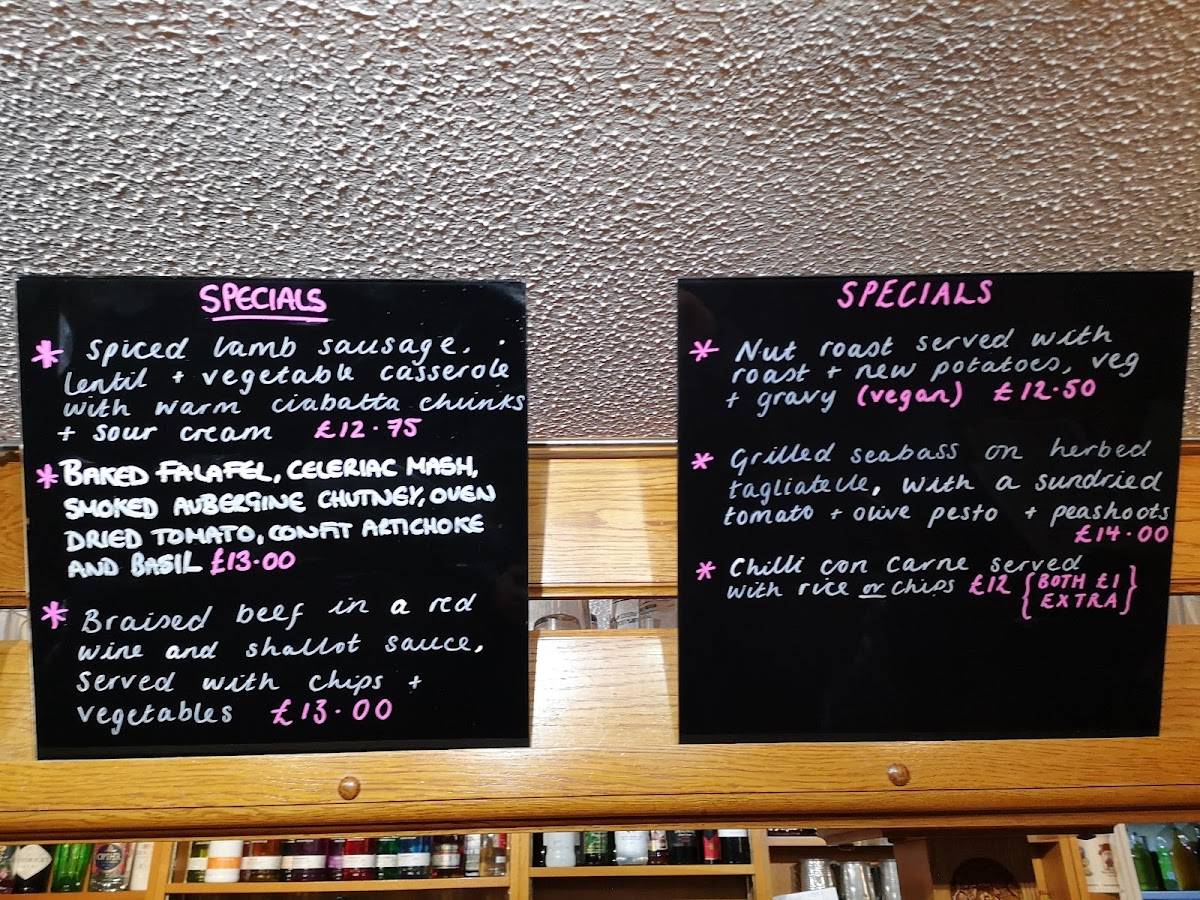 SPECIALS
* Spiced lamb sausage,
lentil + vegetable casserole
with warm ciabatta chunks
+ sour cream £12.75
* BAKED FALAFEL, CELERIAC MASH,
SMOKED AUBERGINE CHUTNEY, OVEN
DRIED TOMATO, CONFIT ARTICHOKE
AND BASIL £13.00
* Braised beef in a red
wine and shallot sauce,
served with chips +
vegetables £13.00
SPECIALS
* Nut roast served with
roast + new potatoes, veg
+ gravy (vegan) £12.50
* Grilled seabass on herbed
tagliatelle, with a sundried
tomato + olive pesto + peashoots
£14.00
* Chilli con carne served
with rice or chips £12 {BOTH £1
EXTRA}